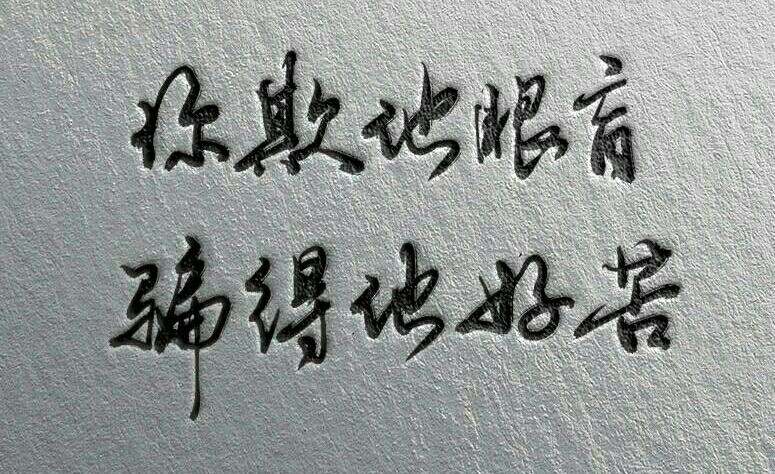 你欺他眼盲
骗得他好苦